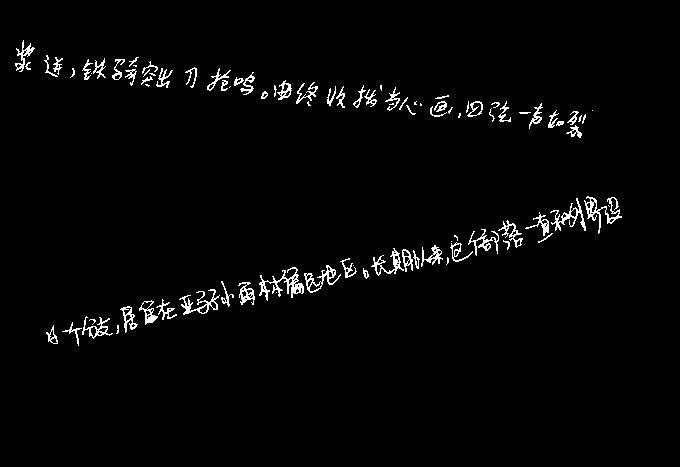 浆迸,铁骑突出刀枪鸣。曲终收拨当心画,四弦一声如裂
的一个分支,居留在亚马孙雨林偏远地区。长期以来,这个部落一直和外界没